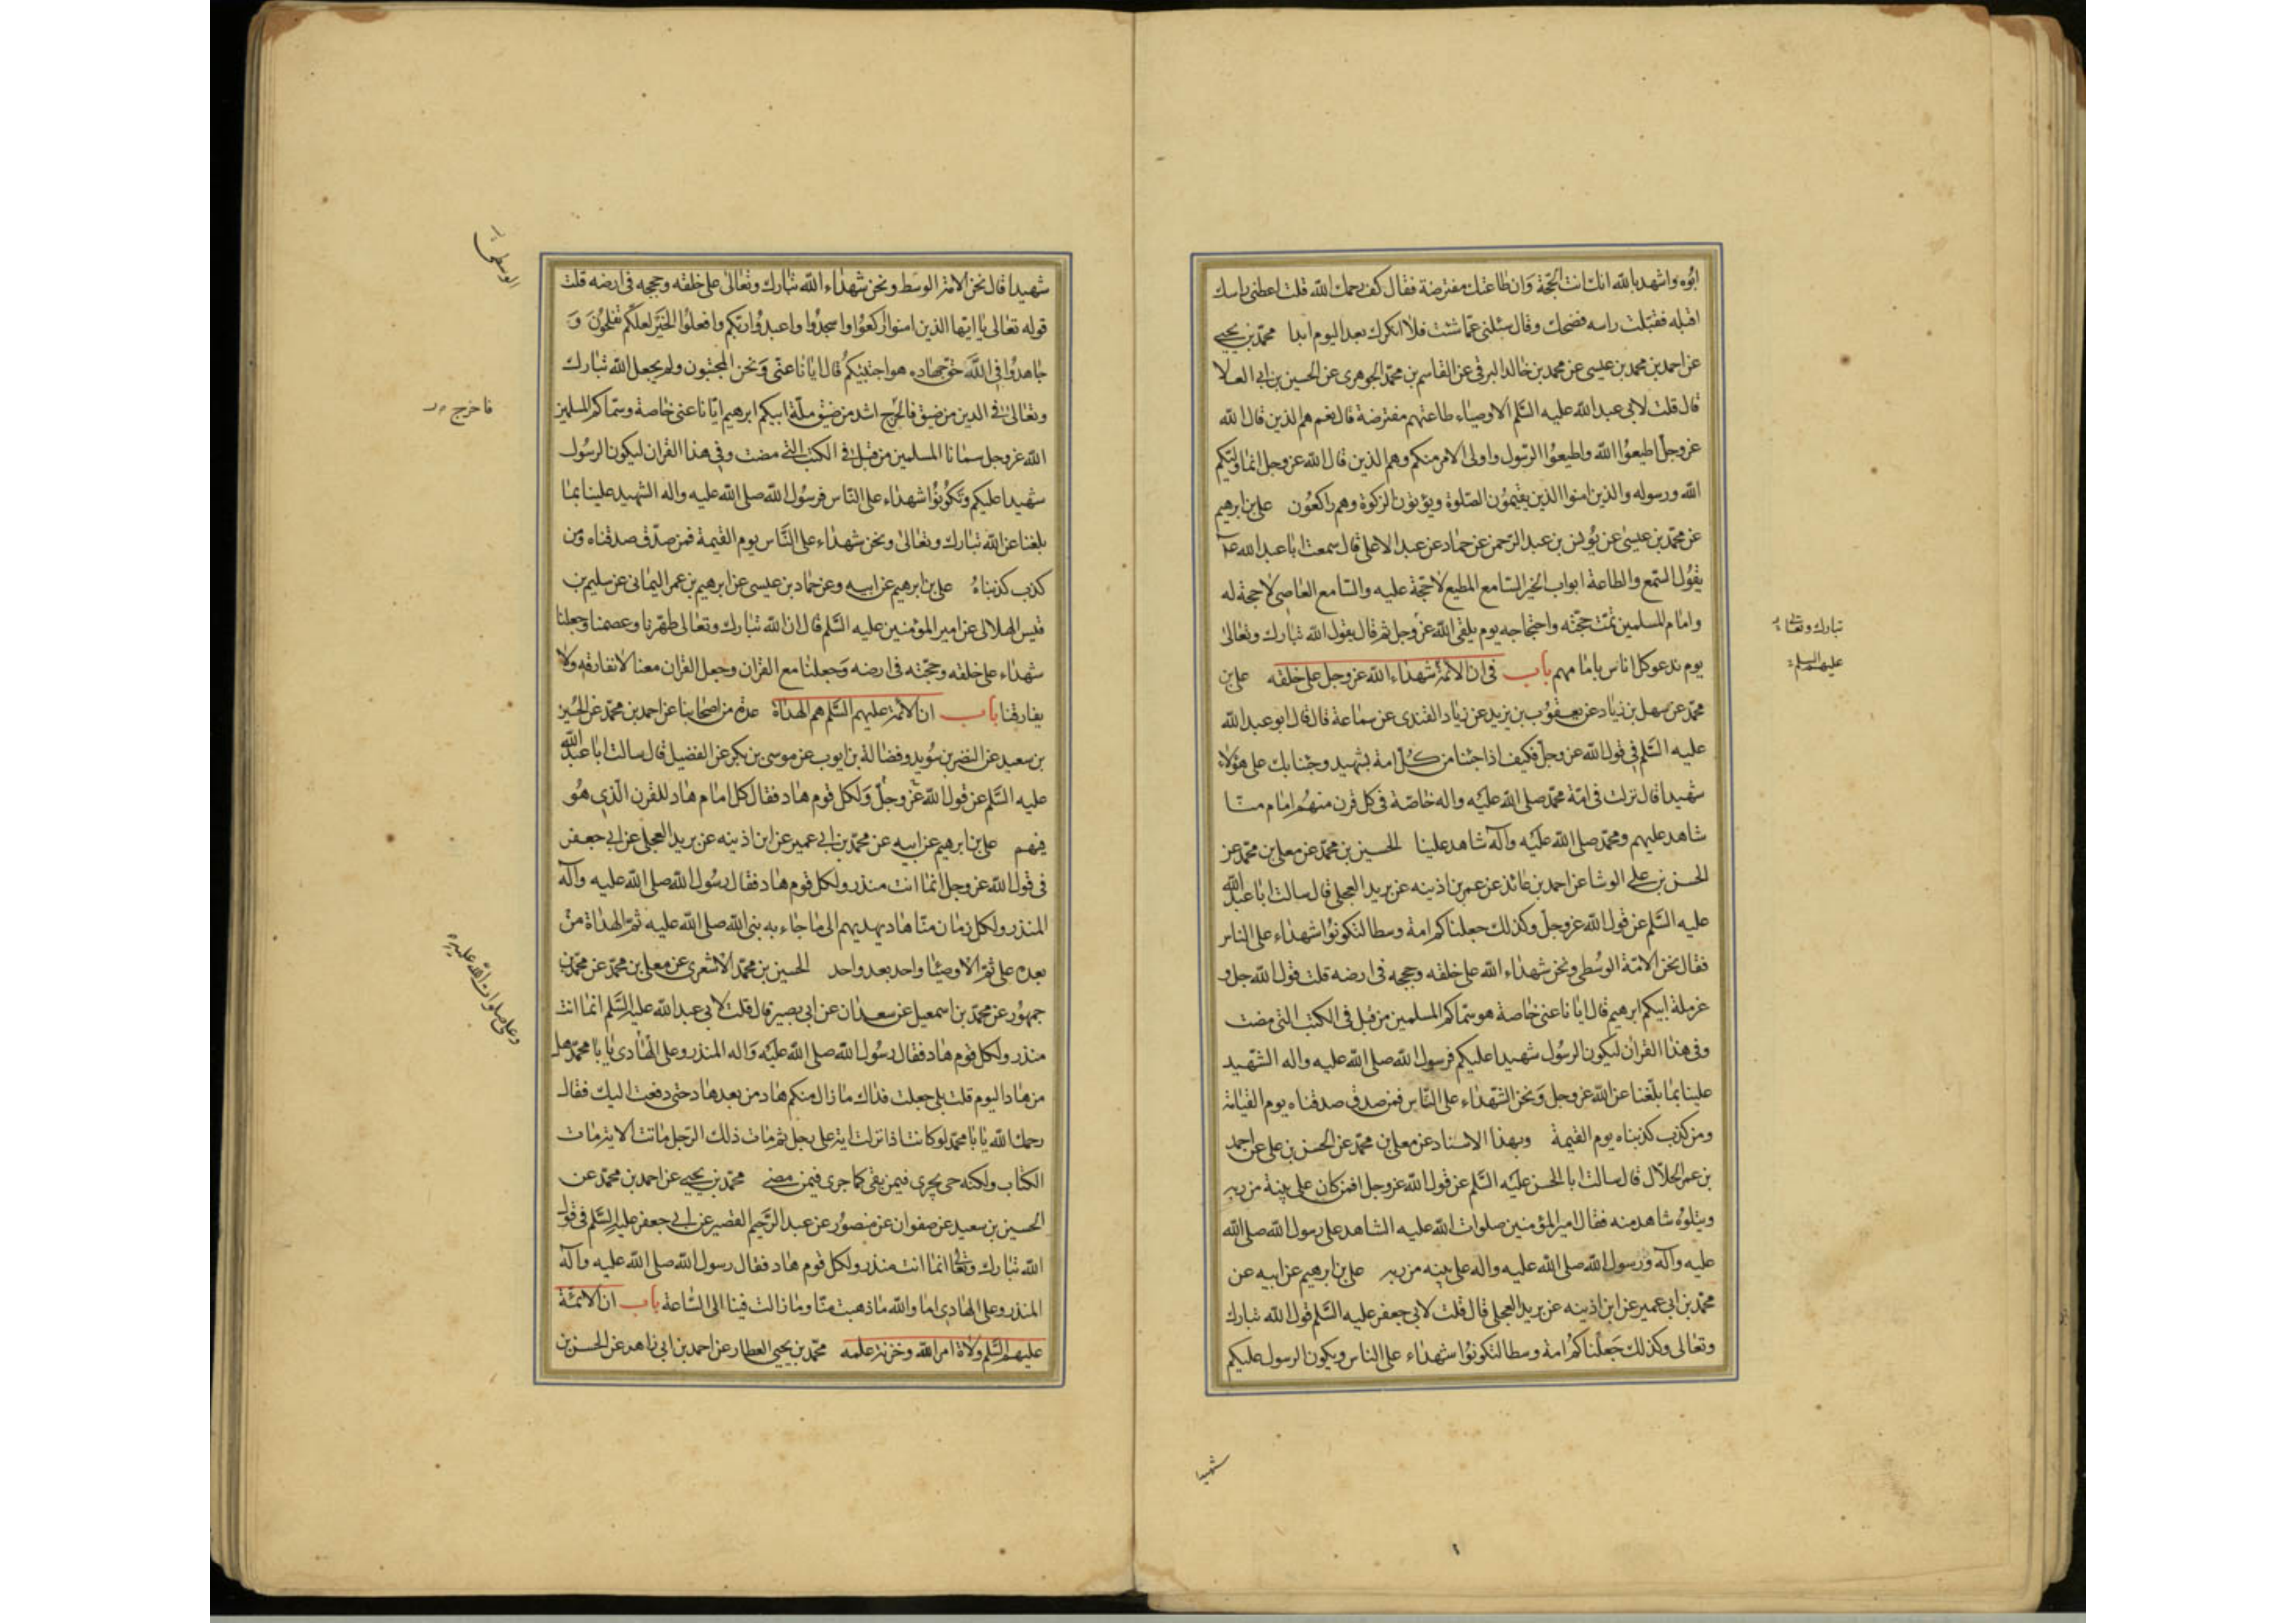 ابوه واشهد بالله انك انت الحجة وان طاعتك مفترضة فقال كف رحمك الله قلت اعطنى راسك
اقبله فقبلت راسه فضحك وقال سلنى عما شئت فلا انكرك بعد اليوم ابدا محمد بن يحيى
عن احمد بن محمد بن عيسى عن محمد بن خالد البرقى عن القاسم بن محمد الجوهرى عن الحسين بن ابى العلا
قال قلت لابى عبد الله عليه السلم الاوصياء طاعتهم مفترضة قال نعم هم الذين قال الله
عز وجل اطيعوا الله واطيعوا الرسول واولى الامر منكم وهم الذين قال الله عز وجل انما وليكم
الله ورسوله والذين امنوا الذين يقيمون الصلوة ويؤتون الزكوة وهم راكعون على بن ابرهيم
عن محمد بن عيسى عن يونس بن عبد الرحمن عن حماد عن عبد الاعلى قال سمعت ابا عبد الله ع
يقول السمع والطاعة ابواب الخير السامع المطيع لا حجة عليه والسامع العاصى لا حجة له
وامام المسلمين تمت حجته واحتجاجه يوم يلقى الله عز وجل ثم قال يقول الله تبارك وتعالى
يوم ندعو كل اناس بامامهم باب فى ان الائمة شهداء الله عز وجل على خلقه على بن
محمد عن سهل بن زياد عن يعقوب بن يزيد عن زياد القندى عن سماعة قال قال ابو عبد الله
عليه السلم فى قول الله عز وجل فكيف اذا جئنا من كل امة بشهيد وجئنا بك على هؤلاء
شهيدا قال نزلت فى امة محمد صلى الله عليه واله خاصة فى كل قرن منهم امام منا
شاهد عليهم ومحمد صلى الله عليه وآله شاهد علينا الحسين بن محمد عن معلى بن محمد عن
الحسن بن على الوشا عن احمد بن عائذ عن عمر بن اذينه عن بريد العجلى قال سالت ابا عبد الله
عليه السلم عن قول الله عز وجل وكذلك جعلناكم امة وسطا لتكونوا شهداء على الناس
فقال نحن الامة الوسطى ونحن شهداء الله على خلقه وحججه فى ارضه قلت قول الله جل و
عز ملة ابيكم ابرهيم قال ايانا عنى خاصة هو سماكم المسلمين من قبل فى الكتب التى مضت
وفى هذا القران ليكون الرسول شهيدا عليكم فرسول الله صلى الله عليه واله الشهيد
علينا بما بلغنا عن الله عز وجل ونحن الشهداء على الناس فمن صدق صدقناه يوم القيامة
ومن كذب كذبناه يوم القيمة وبهذا الاسناد عن معلى بن محمد عن الحسن بن على عن احمد
بن عمر الحلال قال سالت ابا الحسن عليه السلم عن قول الله عز وجل افمن كان على بينة من ربه
ويتلوه شاهد منه فقال امير المؤمنين صلوات الله عليه الشاهد على رسول الله صلى الله
عليه وآله ورسول الله صلى الله عليه واله على بينه من ربه على بن ابرهيم عن ابيه عن
محمد بن ابى عمير عن ابن اذينه عن بريد العجلى قال قلت لابى جعفر عليه السلم قول الله تبارك
وتعالى وكذلك جعلناكم امة وسطا لتكونوا شهداء على الناس ويكون الرسول عليكم
تبارك وتعالى
عليهم السلم
شهيدا
شهيدا قال نحن الامة الوسط ونحن شهداء الله تبارك وتعالى على خلقه وحججه فى ارضه قلت
قوله تعالى يا ايها الذين امنوا اركعوا واسجدوا واعبدوا ربكم وافعلوا الخير لعلكم تفلحون و
جاهدوا فى الله حق جهاده هو اجتبيكم قال ايانا عنى ونحن المجتبون ولم يجعل الله تبارك
وتعالى فى الدين من ضيق فالحرج اشد من ضيق ملة ابيكم ابرهيم ايانا عنى خاصة وسماكم المسلمين
الله عز وجل سمانا المسلمين من قبل فى الكتب التى مضت وفى هذا القران ليكون الرسول
شهيدا عليكم وتكونوا شهداء على الناس فرسول الله صلى الله عليه واله الشهيد علينا بما
بلغنا عن الله تبارك وتعالى ونحن شهداء على الناس يوم القيمة فمن صدق صدقناه ومن
كذب كذبناه على بن ابرهيم عن ابيه وعن حماد بن عيسى عن ابرهيم بن عمر اليمانى عن سليم بن
قيس الهلالى عن امير المؤمنين عليه السلم قال ان الله تبارك وتعالى طهرنا وعصمنا وجعلنا
شهداء على خلقه وحجته فى ارضه وجعلنا مع القران وجعل القران معنا لا نفارقه ولا
يفارقنا باب ان الائمة عليهم السلم هم الهداة عدة من اصحابنا عن احمد بن محمد عن الحسين
بن سعيد عن النضر بن سويد وفضالة بن ايوب عن موسى بن بكر عن الفضيل قال سالت ابا عبد الله
عليه السلم عن قول الله عز وجل ولكل قوم هاد فقال كل امام هاد للقرن الذى هو
فيهم على بن ابرهيم عن ابيه عن محمد بن ابى عمير عن ابن اذينه عن بريد العجلى عن ابى جعفر
فى قول الله عز وجل انما انت منذر ولكل قوم هاد فقال رسول الله صلى الله عليه وآله
المنذر ولكل زمان منا هاد يهديهم الى ما جاء به نبى الله صلى الله عليه ثم الهداة من
بعده على ثم الاوصيا واحد بعد واحد الحسين بن محمد الاشعرى عن معلى بن محمد عن محمد بن
جمهور عن محمد بن اسمعيل عن سعدان عن ابى بصير قال قلت لابى عبد الله عليه السلم انما انت
منذر ولكل قوم هاد فقال رسول الله صلى الله عليه واله المنذر وعلى الهادى يا با محمد هل
من هاد اليوم قلت بلى جعلت فداك ما زال منكم هاد من بعد هاد حتى دفعت اليك فقال
رحمك الله يا با محمد لو كانت اذا نزلت اية على رجل ثم مات ذلك الرجل ماتت الاية مات
الكتاب ولكنه حى يجرى فيمن بقى كما جرى فيمن مضى محمد بن يحيى عن احمد بن محمد عن
الحسين بن سعيد عن صفوان عن منصور عن عبد الرحيم القصير عن ابى جعفر عليه السلم فى قول
الله تبارك وتعالى انما انت منذر ولكل قوم هاد فقال رسول الله صلى الله عليه وآله
المنذر وعلى الهادى اما والله ما ذهبت منا وما زالت فينا الى الساعة باب ان الائمة
عليهم السلم ولاة امر الله وخزنة علمه محمد بن يحيى العطار عن احمد بن ابى زاهد عن الحسن بن
الوسطى
فا حرج
وعلى صلوات الله عليه